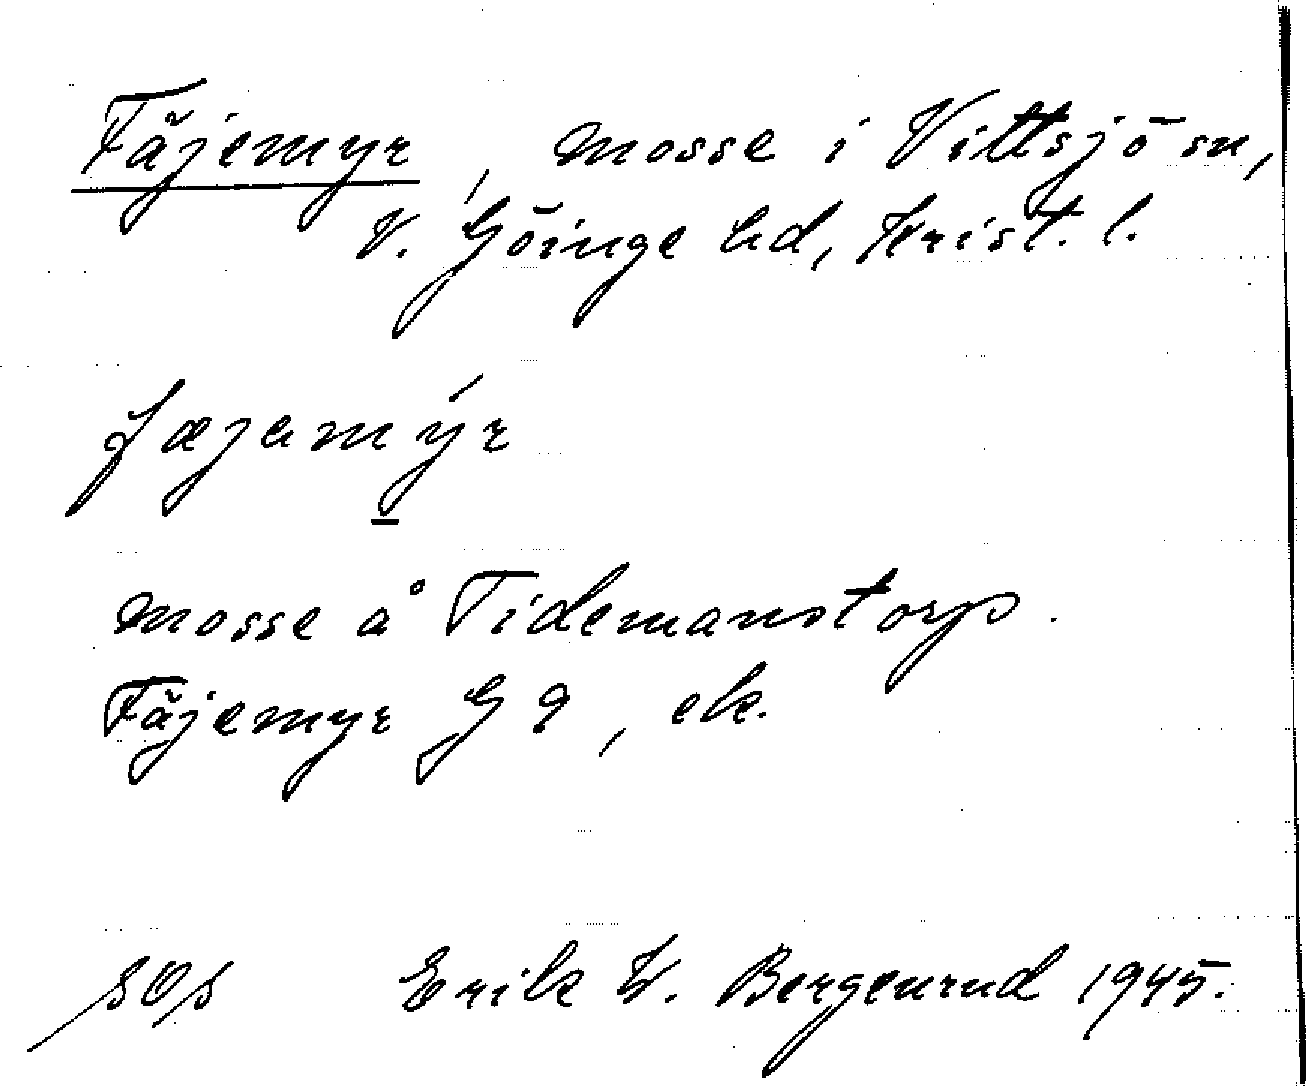 Fäjemyr, mosse i Vittsjö sn,
V. Göinge hd, Krist. l.
fæjamýr
mosse å Tidemanstorp.
Fäjemyr G 9, ek.
Erik W. Bergenrud 1945.